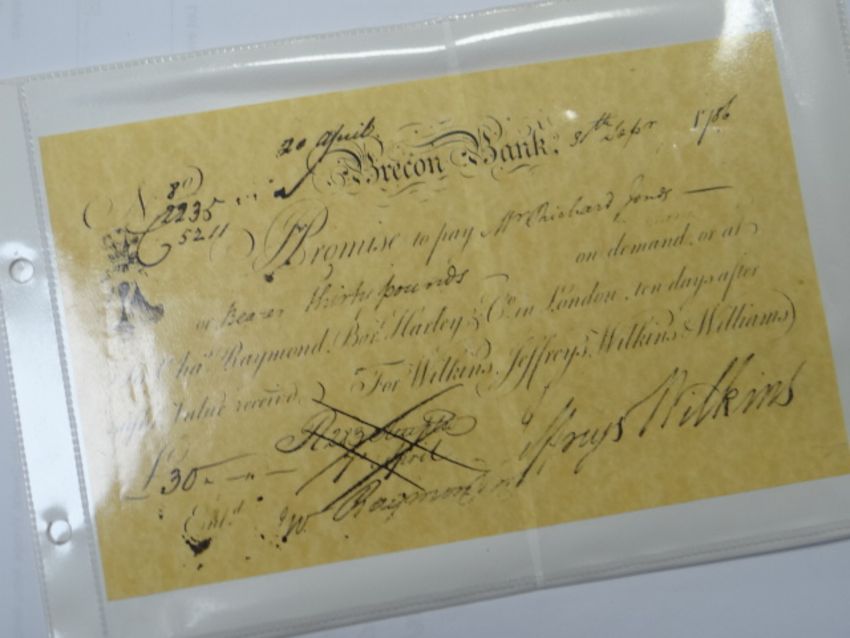 20 April
Brecon Bank. 8th Sepr 1786
No. 80
2235
5211
I Promise to pay Mr Richard Jones
or Bearer thirty pounds on demand, or at
Chas Raymond, Harley & Co. in London, ten days after
Value received. For Wilkins, Jeffreys, Wilkins & Williams
£30
A 283
April
Jeffreys Wilkins
Entd W. Raymond